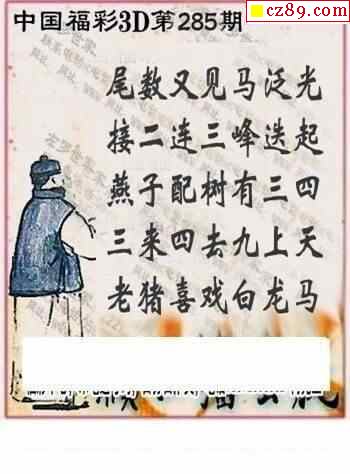 cz89.com
中国福彩3D第285期
尾数又见马泛光
接二连三峰迭起
燕子配树有三四
三来四去九上天
老猪喜戏白龙马